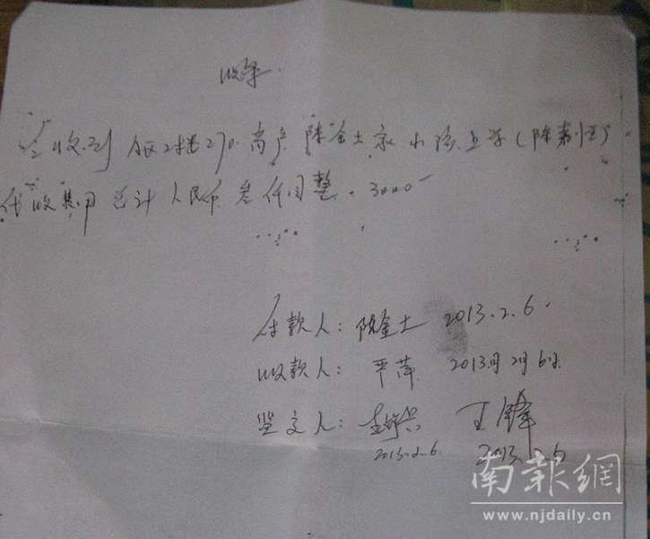 收条
今收到 270 高 陈金土家小孩上学(陈
代收费用 总计 人民币 叁仟圆整。3000
付款人：陈金土 2013.2.6.
收款人：严萍 2013年2月6日
监交人： 王锋
2013.2.6 2013.2.6
南報網
www.njdaily.cn